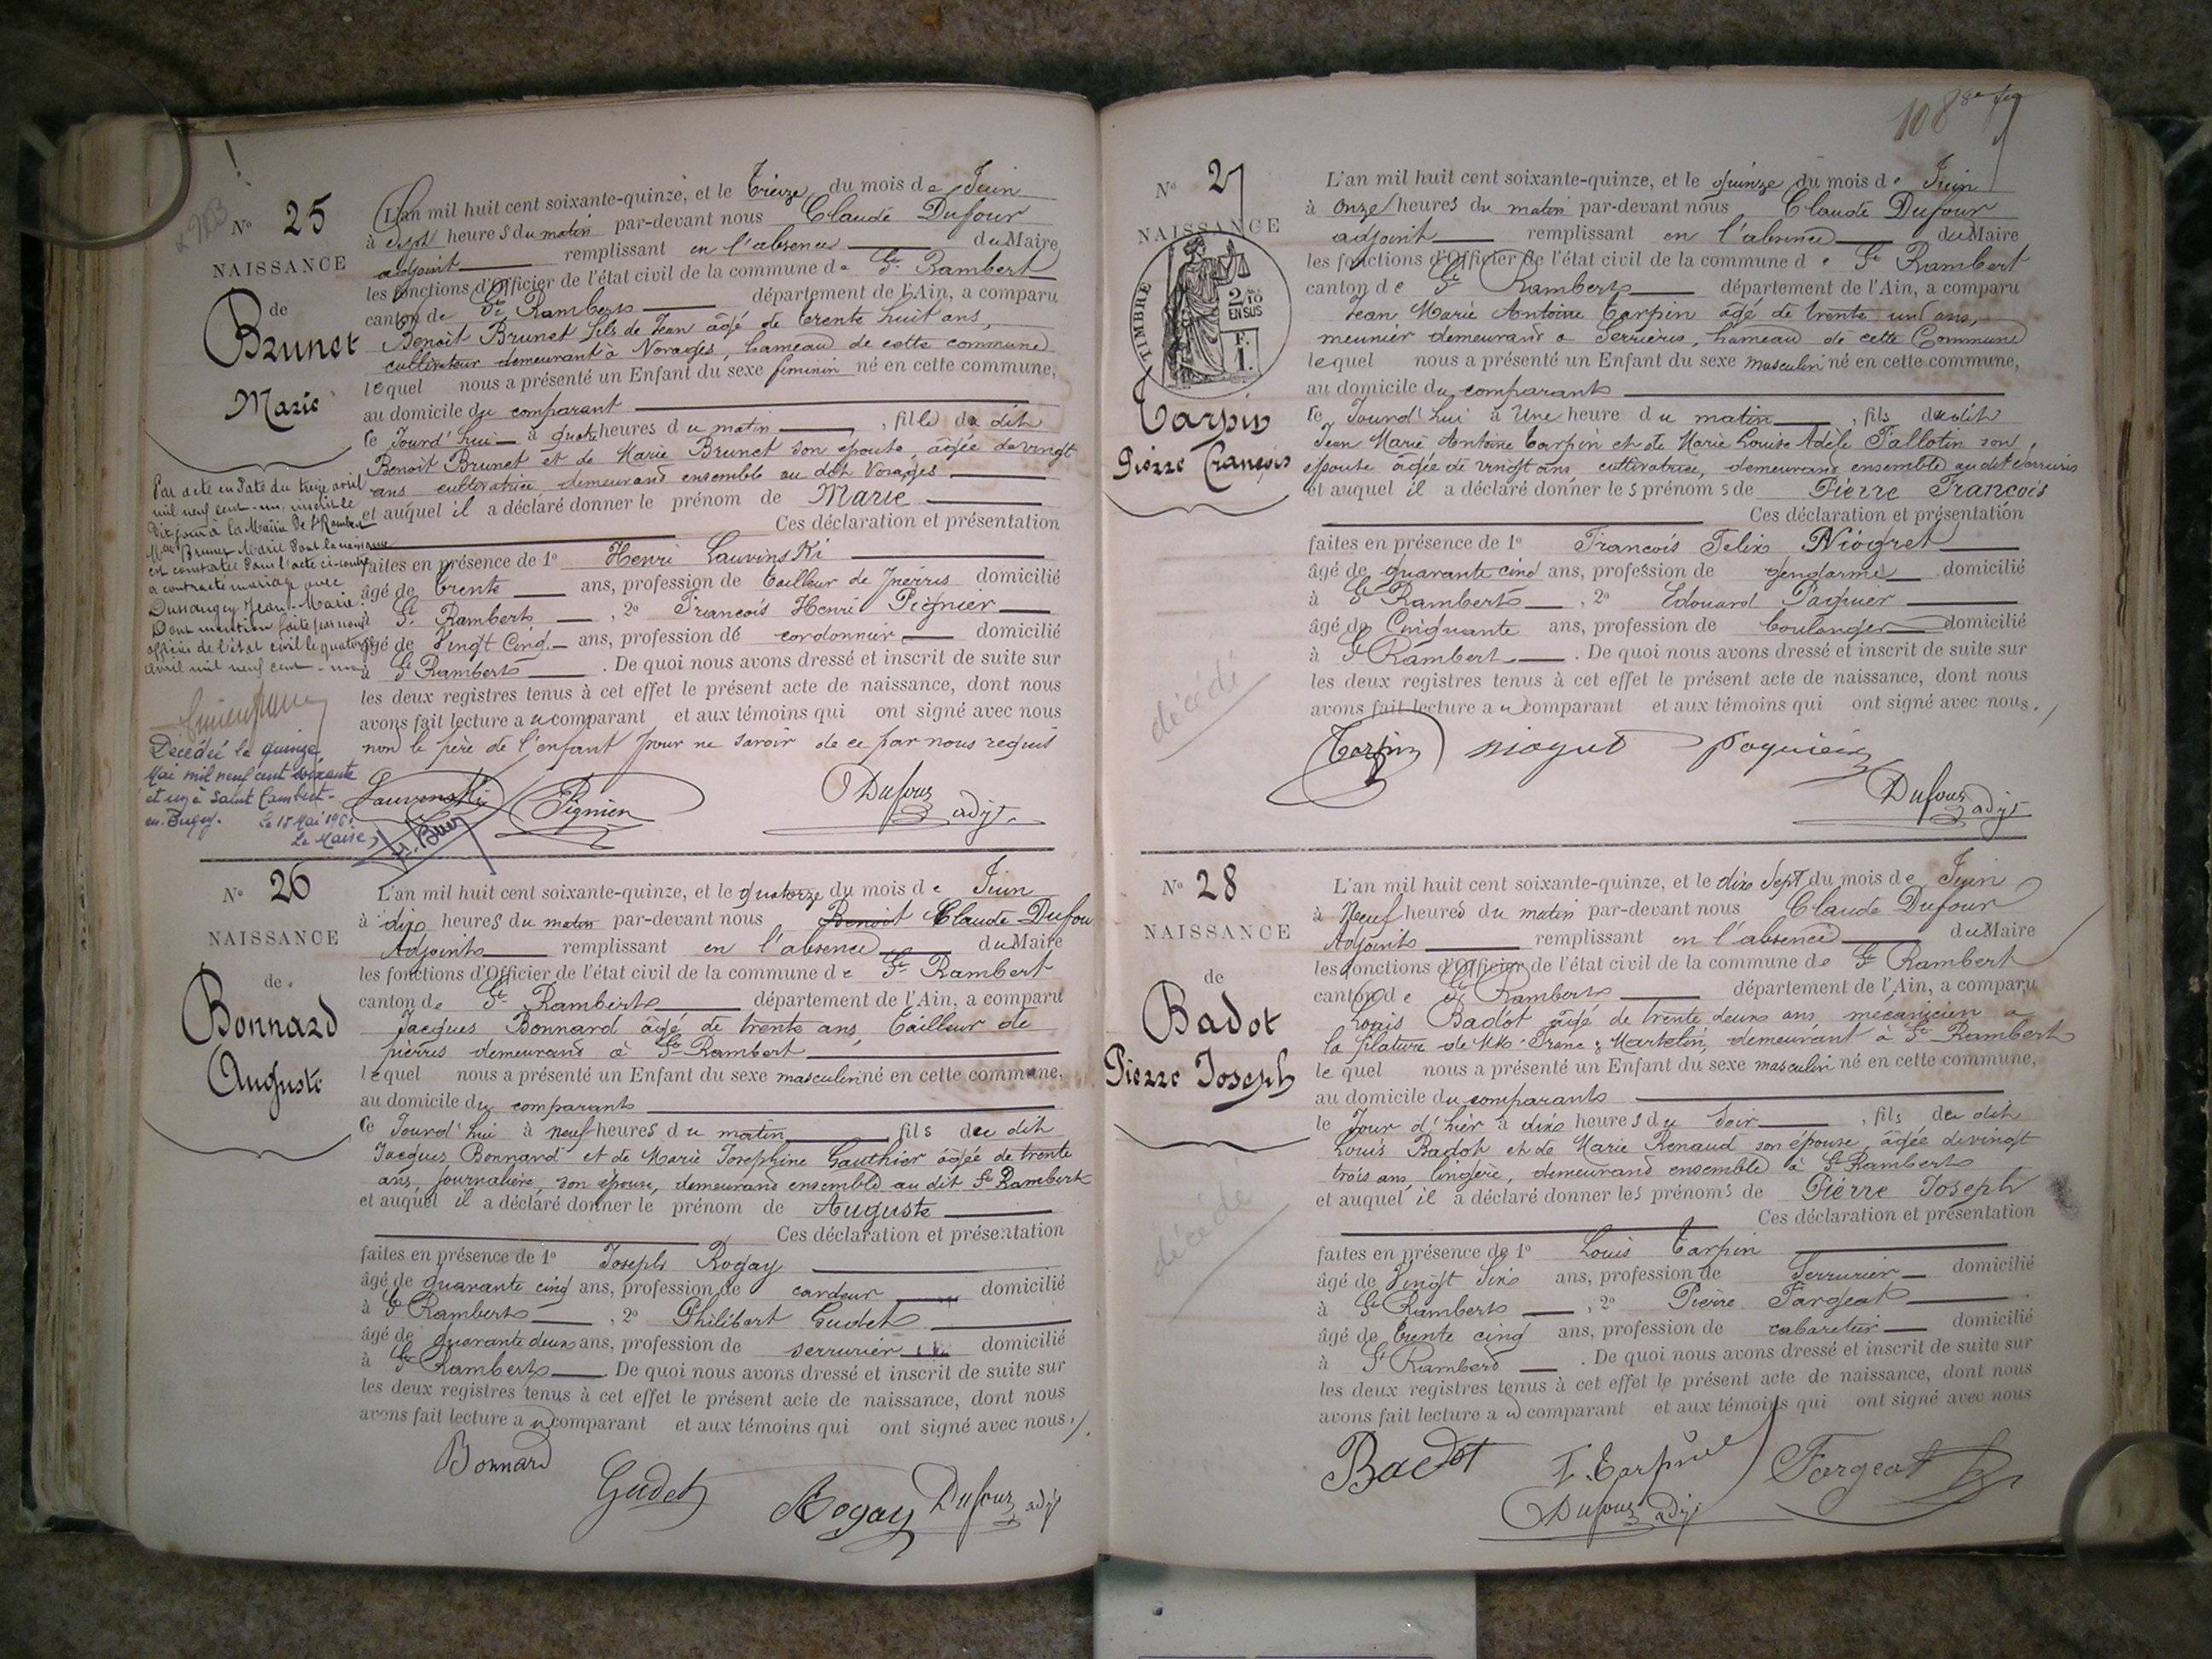 N° 25
NAISSANCE
de
Brunet
Marie
L'an mil huit cent soixante-quinze, et le treize du mois de Juin
à Sept heures du matin par-devant nous Claude Dufour
adjoint remplissant en l'absence du Maire
les fonctions d'Officier de l'état civil de la commune de St Rambert
canton de St Rambert département de l'Ain, a comparu
Benoit Brunet fils de Jean âgé de trente huit ans,
cultivateur demeurant à Vorages, hameau de cette commune
lequel nous a présenté un Enfant du sexe feminin né en cette commune,
au domicile du comparant
ce Jourd'hui à quatre heures du matin, fille du dit
Benoit Brunet et de Marie Brunet son epouse, âgée de vingt
ans cultivatrice demeurand ensemble au dit Vorages
et auquel il a déclaré donner le prénom de Marie
Ces déclaration et présentation
faites en présence de 1° Henri Lauvinski
âgé de trente ans, profession de tailleur de pierres domicilié
à St Rambert, 2° François Henri Pignier
âgé de Vingt Cinq ans, profession de cordonnier domicilié
à St Rambert. De quoi nous avons dressé et inscrit de suite sur
les deux registres tenus à cet effet le présent acte de naissance, dont nous
avons fait lecture au comparant et aux témoins qui ont signé avec nous
non le père de l'enfant pour ne savoir de ce par nous requis
Pignier Dufour adjt
Par acte en date du treize avril
mil neuf cent un, inscrit le
dit jour à la Mairie de St Rambert
Mlle Brunet Marie dont la naissance
est constatée dans l'acte ci-contre
a contracté mariage avec
Dussaugey Jean-Marie.
Dont mention faite par nous
officier de l'état civil le quatorze
avril mil neuf cent un
Décédée le quinze
Mai mil neuf cent soixante
et un à Saint Rambert-
en-Bugey. Le 15 Mai 1961
Le Maire,
N° 26
NAISSANCE
de
Bonnard
Auguste
L'an mil huit cent soixante-quinze, et le quatorze du mois de Juin
à dix heures du matin par-devant nous Benoit Claude Dufour
Adjoint remplissant en l'absence du Maire
les fonctions d'Officier de l'état civil de la commune de St Rambert
canton de St Rambert département de l'Ain, a comparu
Jacques Bonnard âgé de trente ans, tailleur de
pierres demeurand à St Rambert
lequel nous a présenté un Enfant du sexe masculin né en cette commune,
au domicile du comparant
ce Jourd'hui à neuf heures du matin fils du dit
Jacques Bonnard et de Marie Josephine Gauthier âgée de trente
ans, journalière, son épouse, demeurand ensemble au dit St Rambert
et auquel il a déclaré donner le prénom de Auguste
Ces déclaration et présentation
faites en présence de 1° Joseph Rogay
âgé de quarante cinq ans, profession de cardeur domicilié
à St Rambert, 2° Philibert Gudet
âgé de quarante deux ans, profession de serrurier domicilié
à St Rambert. De quoi nous avons dressé et inscrit de suite sur
les deux registres tenus à cet effet le présent acte de naissance, dont nous
avons fait lecture au comparant et aux témoins qui ont signé avec nous.
Bonnard Gudet Rogay Dufour adjt
108
N° 27
NAISSANCE
TIMBRE
2/10
EN SUS
F.
1.
Tarpin
Pierre François
L'an mil huit cent soixante-quinze, et le quinze du mois de Juin
à Onze heures du matin par-devant nous Claude Dufour
adjoint remplissant en l'absence du Maire
les fonctions d'Officier de l'état civil de la commune de St Rambert
canton de St Rambert département de l'Ain, a comparu
Jean Marie Antoine Tarpin âgé de trente un ans,
meunier demeurand a Serrières, hameau de cette Commune
lequel nous a présenté un Enfant du sexe masculin né en cette commune,
au domicile du comparant
ce Jourd'hui à Une heure du matin, fils du dit
Jean Marie Antoine Tarpin et de Marie Louise Adèle Pallotin son
épouse âgée de vingt ans cultivatrice, demeurand ensemble au dit Serrières
et auquel il a déclaré donner les prénoms de Pierre François
Ces déclaration et présentation
faites en présence de 1° François Felix Niogret
âgé de quarante cinq ans, profession de gendarme domicilié
à St Rambert, 2° Edouard Paquier
âgé de Cinquante ans, profession de boulanger domicilié
à St Rambert. De quoi nous avons dressé et inscrit de suite sur
les deux registres tenus à cet effet le présent acte de naissance, dont nous
avons fait lecture au comparant et aux témoins qui ont signé avec nous.
décédé
Tarpin niogret paquier
Dufour adjt
N° 28
NAISSANCE
de
Badot
Pierre Joseph
L'an mil huit cent soixante-quinze, et le dix Sept du mois de Juin
à Neuf heures du matin par-devant nous Claude Dufour
Adjoint remplissant en l'absence du Maire
les fonctions d'Officier de l'état civil de la commune de St Rambert
canton de St Rambert département de l'Ain, a comparu
Louis Badot âgé de trente deux ans mécanicien a
la filature de MM. Franc & Martelin, demeurant à St Rambert
lequel nous a présenté un Enfant du sexe masculin né en cette commune,
au domicile du comparant
le Jour d'hier à dix heures du Soir, fils du dit
Louis Badot et de Marie Renaud son épouse, âgée de vingt
trois ans, lingère, demeurand ensemble à St Rambert
et auquel il a déclaré donner les prénoms de Pierre Joseph
Ces déclaration et présentation
faites en présence de 1° Louis Tarpin
âgé de Vingt Six ans, profession de Serrurier domicilié
à St Rambert, 2° Pierre Fargeat
âgé de trente cinq ans, profession de cabaretier domicilié
à St Rambert. De quoi nous avons dressé et inscrit de suite sur
les deux registres tenus à cet effet le présent acte de naissance, dont nous
avons fait lecture au comparant et aux témoins qui ont signé avec nous
décédé
Badot L. Tarpin Fargeat
Dufour adjt